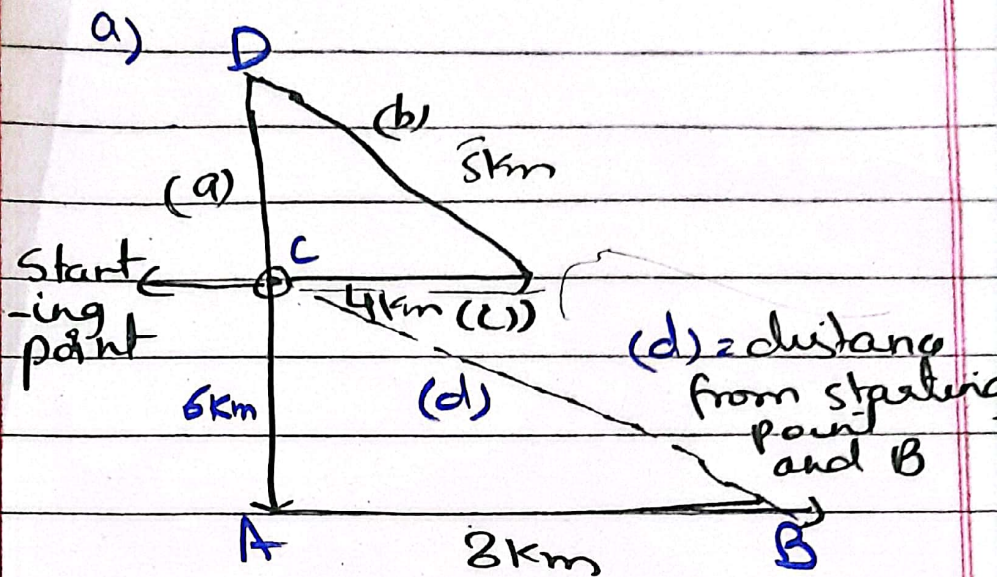 a)
D
(b)
5km
(a)
C
Start
-ing
point
4km (c))
(d) = distance
from starting
point
and B
6km
(d)
A
8km
B